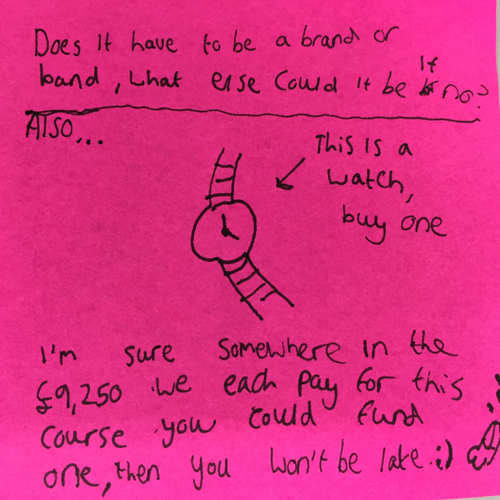 Does It have to be a brand or
band, What else Could It be If no?
Also...
This Is a
watch,
buy one
I'm sure Somewhere In the
£9,250 we each pay for this
Course you could fund
one, then you won't be late :)